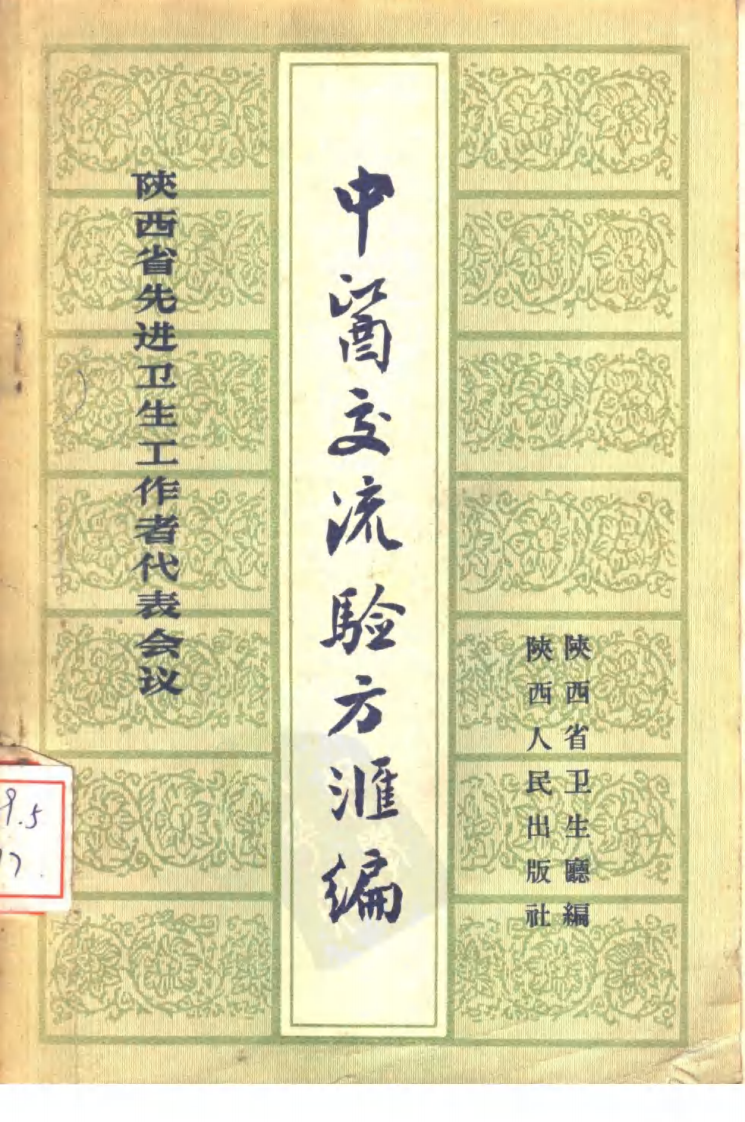 陕西省先进卫生工作者代表会议
中醫交流驗方滙編
陝西省卫生廳編
陝西人民出版社
9.5